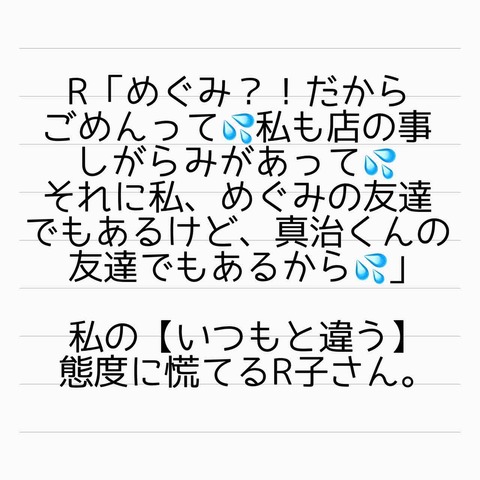 R「めぐみ？！だから
ごめんって💦私も店の事
しがらみがあって💦
それに私、めぐみの友達
でもあるけど、真治くんの
友達でもあるから💦」
私の【いつもと違う】
態度に慌てるR子さん。